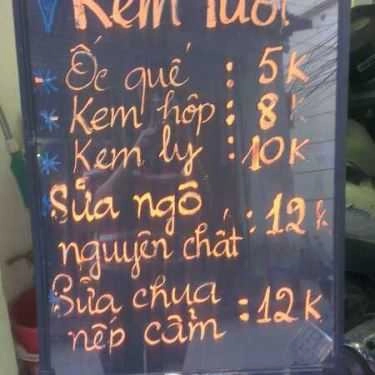 Kem tươi
Ốc quế : 5K
Kem hộp : 8K
Kem ly : 10K
Sữa ngô : 12K
nguyên chất
Sữa chua : 12K
nếp cẩm